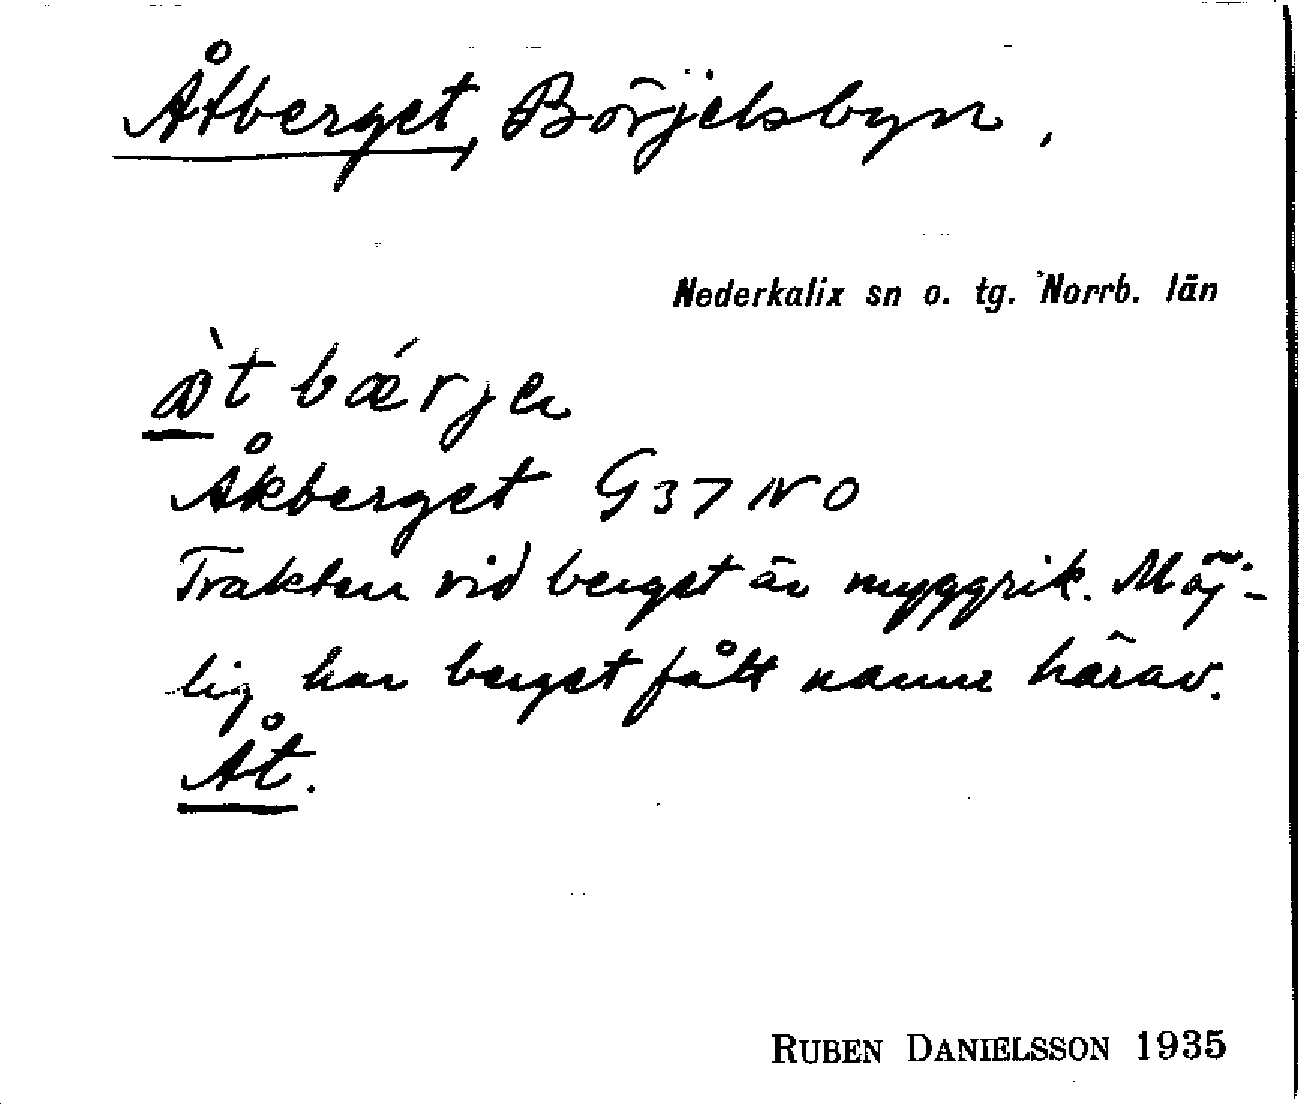 Åtberget, Börjelsbyn,
Nederkalix sn o. tg. Norrb. län
bǽrjen
Åkberget G 37 NO
Trakten vid berget är myggrik. Möj-
lig har berget fått namn härav.
Åt.
RUBEN DANIELSSON 1935